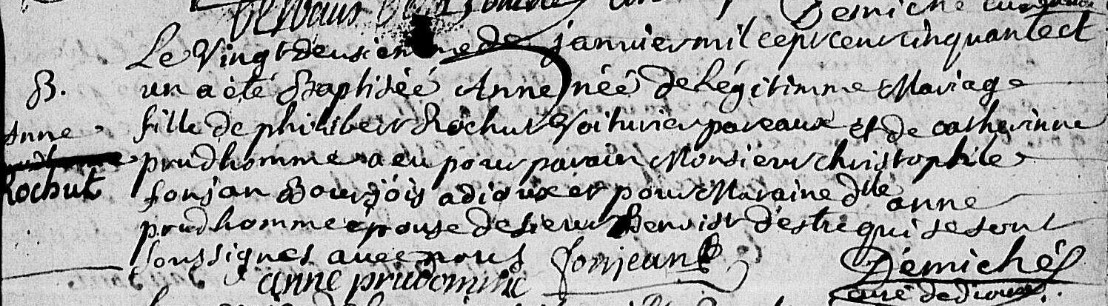 Desmiché curé
Le Vingtdeusienme de janvier mil cept cent cinquante et
B. un a été Baptiséé Anne néé de légitimme Mariage
Anne fille de philibert Rochut Voiturier par eaux et de catherinne
prudhomme a eu pour parain Monsieur christophle
Rochut fonjan Bourjois a dioux et pour Maraine dlle anne
prudhomme epouse de sieur Benoist destre qui se sont
soussignes avec nous
anne prudomme fonjean Démiché
curé de dioux.